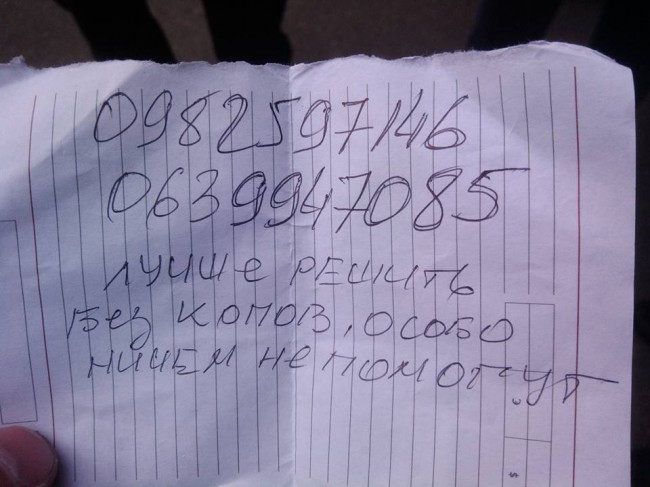 0982597146
0639947085
ЛУЧШЕ РЕШИТЬ
Без КОПОВ, ОСОБО
НИЧЕМ НЕ ПОМОГУТ